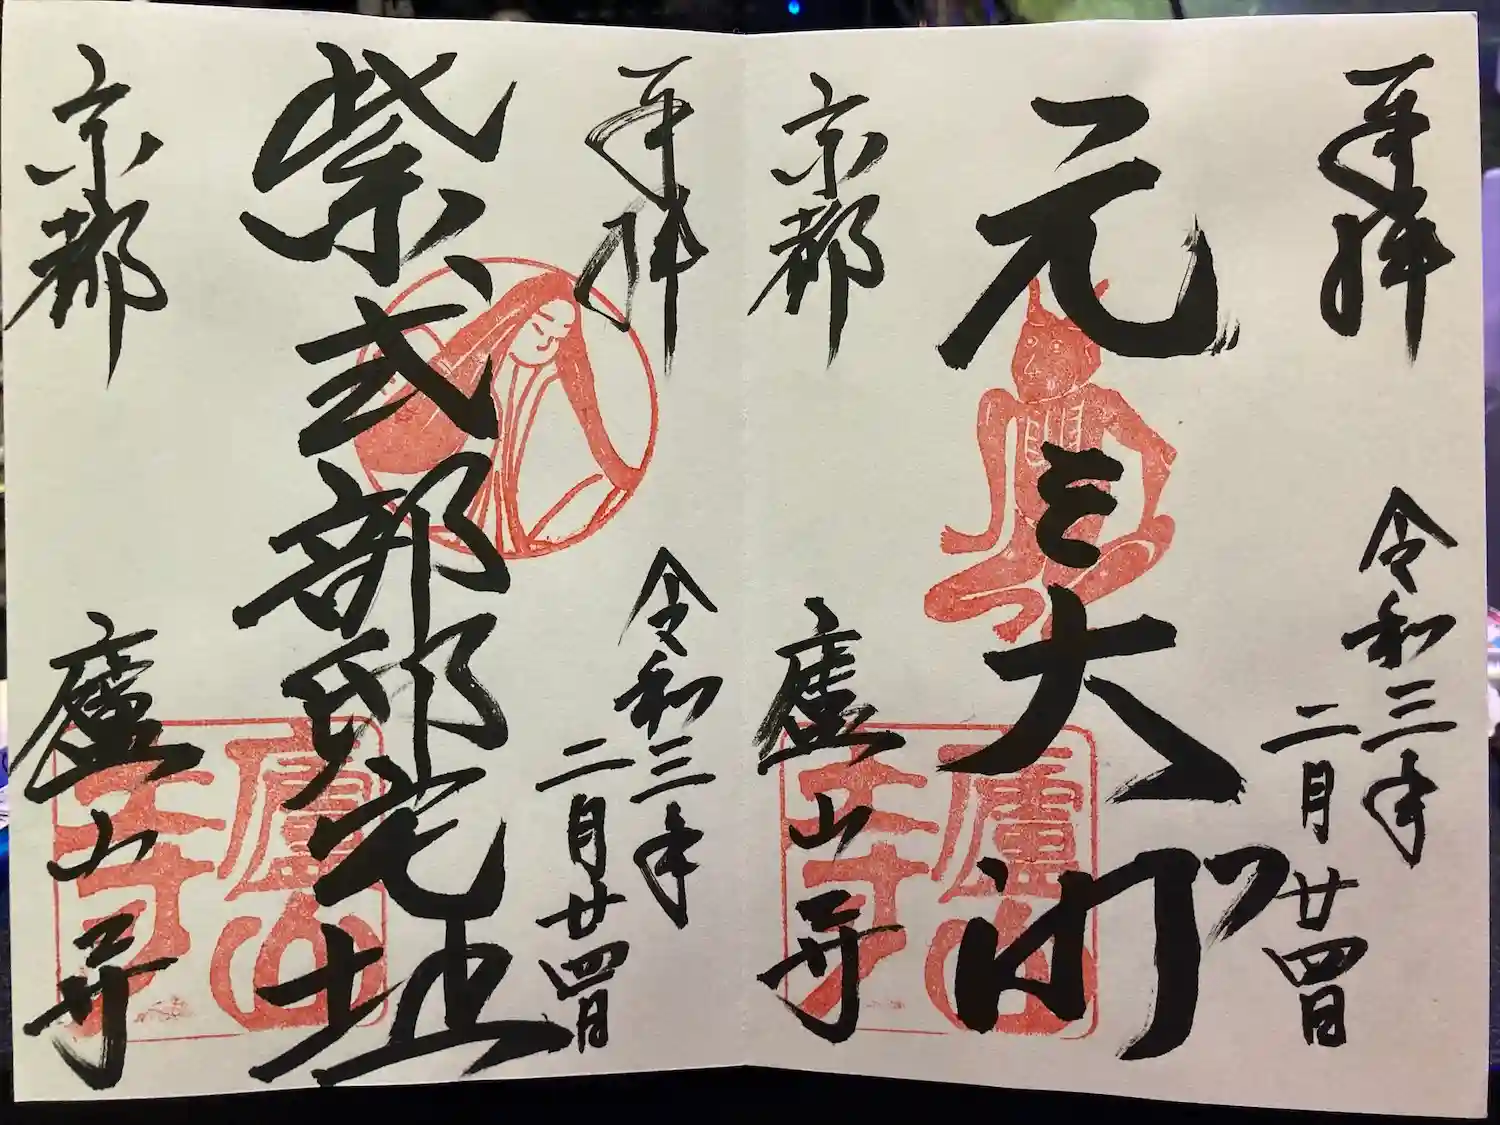 奉拝
令和三年
二月廿四日
元三大師
京都
廬山寺
廬山寺
奉拝
令和三年
二月廿四日
紫式部邸宅址
京都
廬山寺
廬山寺